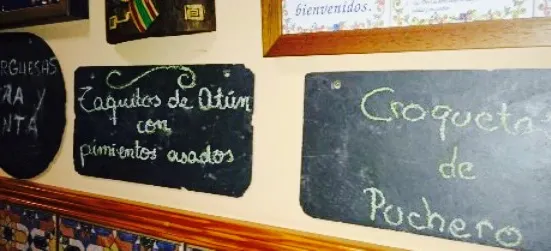 bienvenidos.
RGUESAS
RA Y
NTA
Taquitos de Atún
con
pimientos asados
Croqueta
de
Puchero